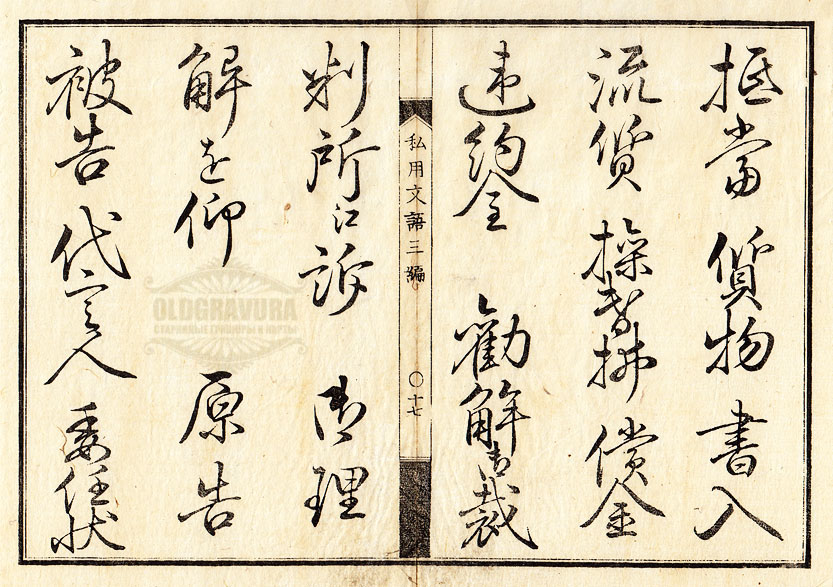 抵當 質物 書入
流質 操替拂 償金
違約金 勸解御裁
私用文語三編 〇十七
判所江訴 御理
解を仰 原告
被告 代言人 委任状
OLDGRAVURA
СТАРИННЫЕ ГРАВЮРЫ И КАРТЫ